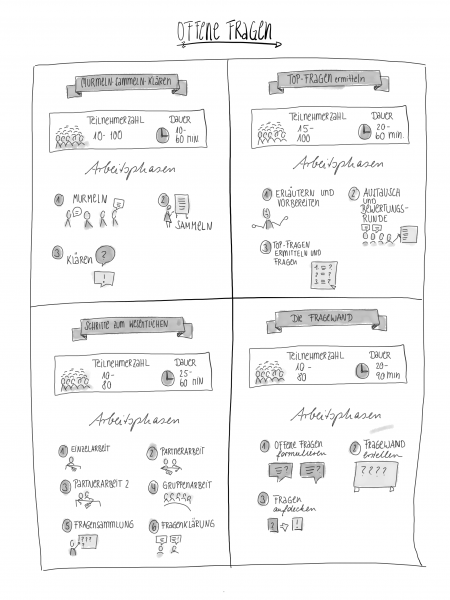 OFFENE FRAGEN
MURMELN-SAMMELN-KLÄREN
TEILNEHMERZAHL
10-100
DAUER
10-
60 MIN.
Arbeitsphasen
1 MURMELN
2
SAMMELN
3 KLÄREN
?
!
TOP-FRAGEN ermitteln
TEILNEHMERZAHL
15-
100
DAUER
20-
60 min.
Arbeitsphasen
1 ERLÄUTERN UND
VORBEREITEN
2 AUSTAUSCH
UND
BEWERTUNGS-
RUNDE
3 TOP-FRAGEN
ERMITTELN UND
FRAGEN
1 = ?
2 = ?
3 = ?
SCHRITTE ZUM WESENTLICHEN
TEILNEHMERZAHL
10-
80
DAUER
25-
60 MIN
Arbeitsphasen
1 EINZELARBEIT
2 PARTNERARBEIT
3 PARTNERARBEIT 2
4 GRUPPENARBEIT
5 FRAGENSAMMLUNG
???
6 FRAGENKLÄRUNG
DIE FRAGEWAND
TEILNEHMERZAHL
10-
80
DAUER
20-
90 min
Arbeitsphasen
1 OFFENE FRAGEN
formulieren
2 FRAGEWAND
erstellen
????
3 FRAGEN
aufdecken
? !